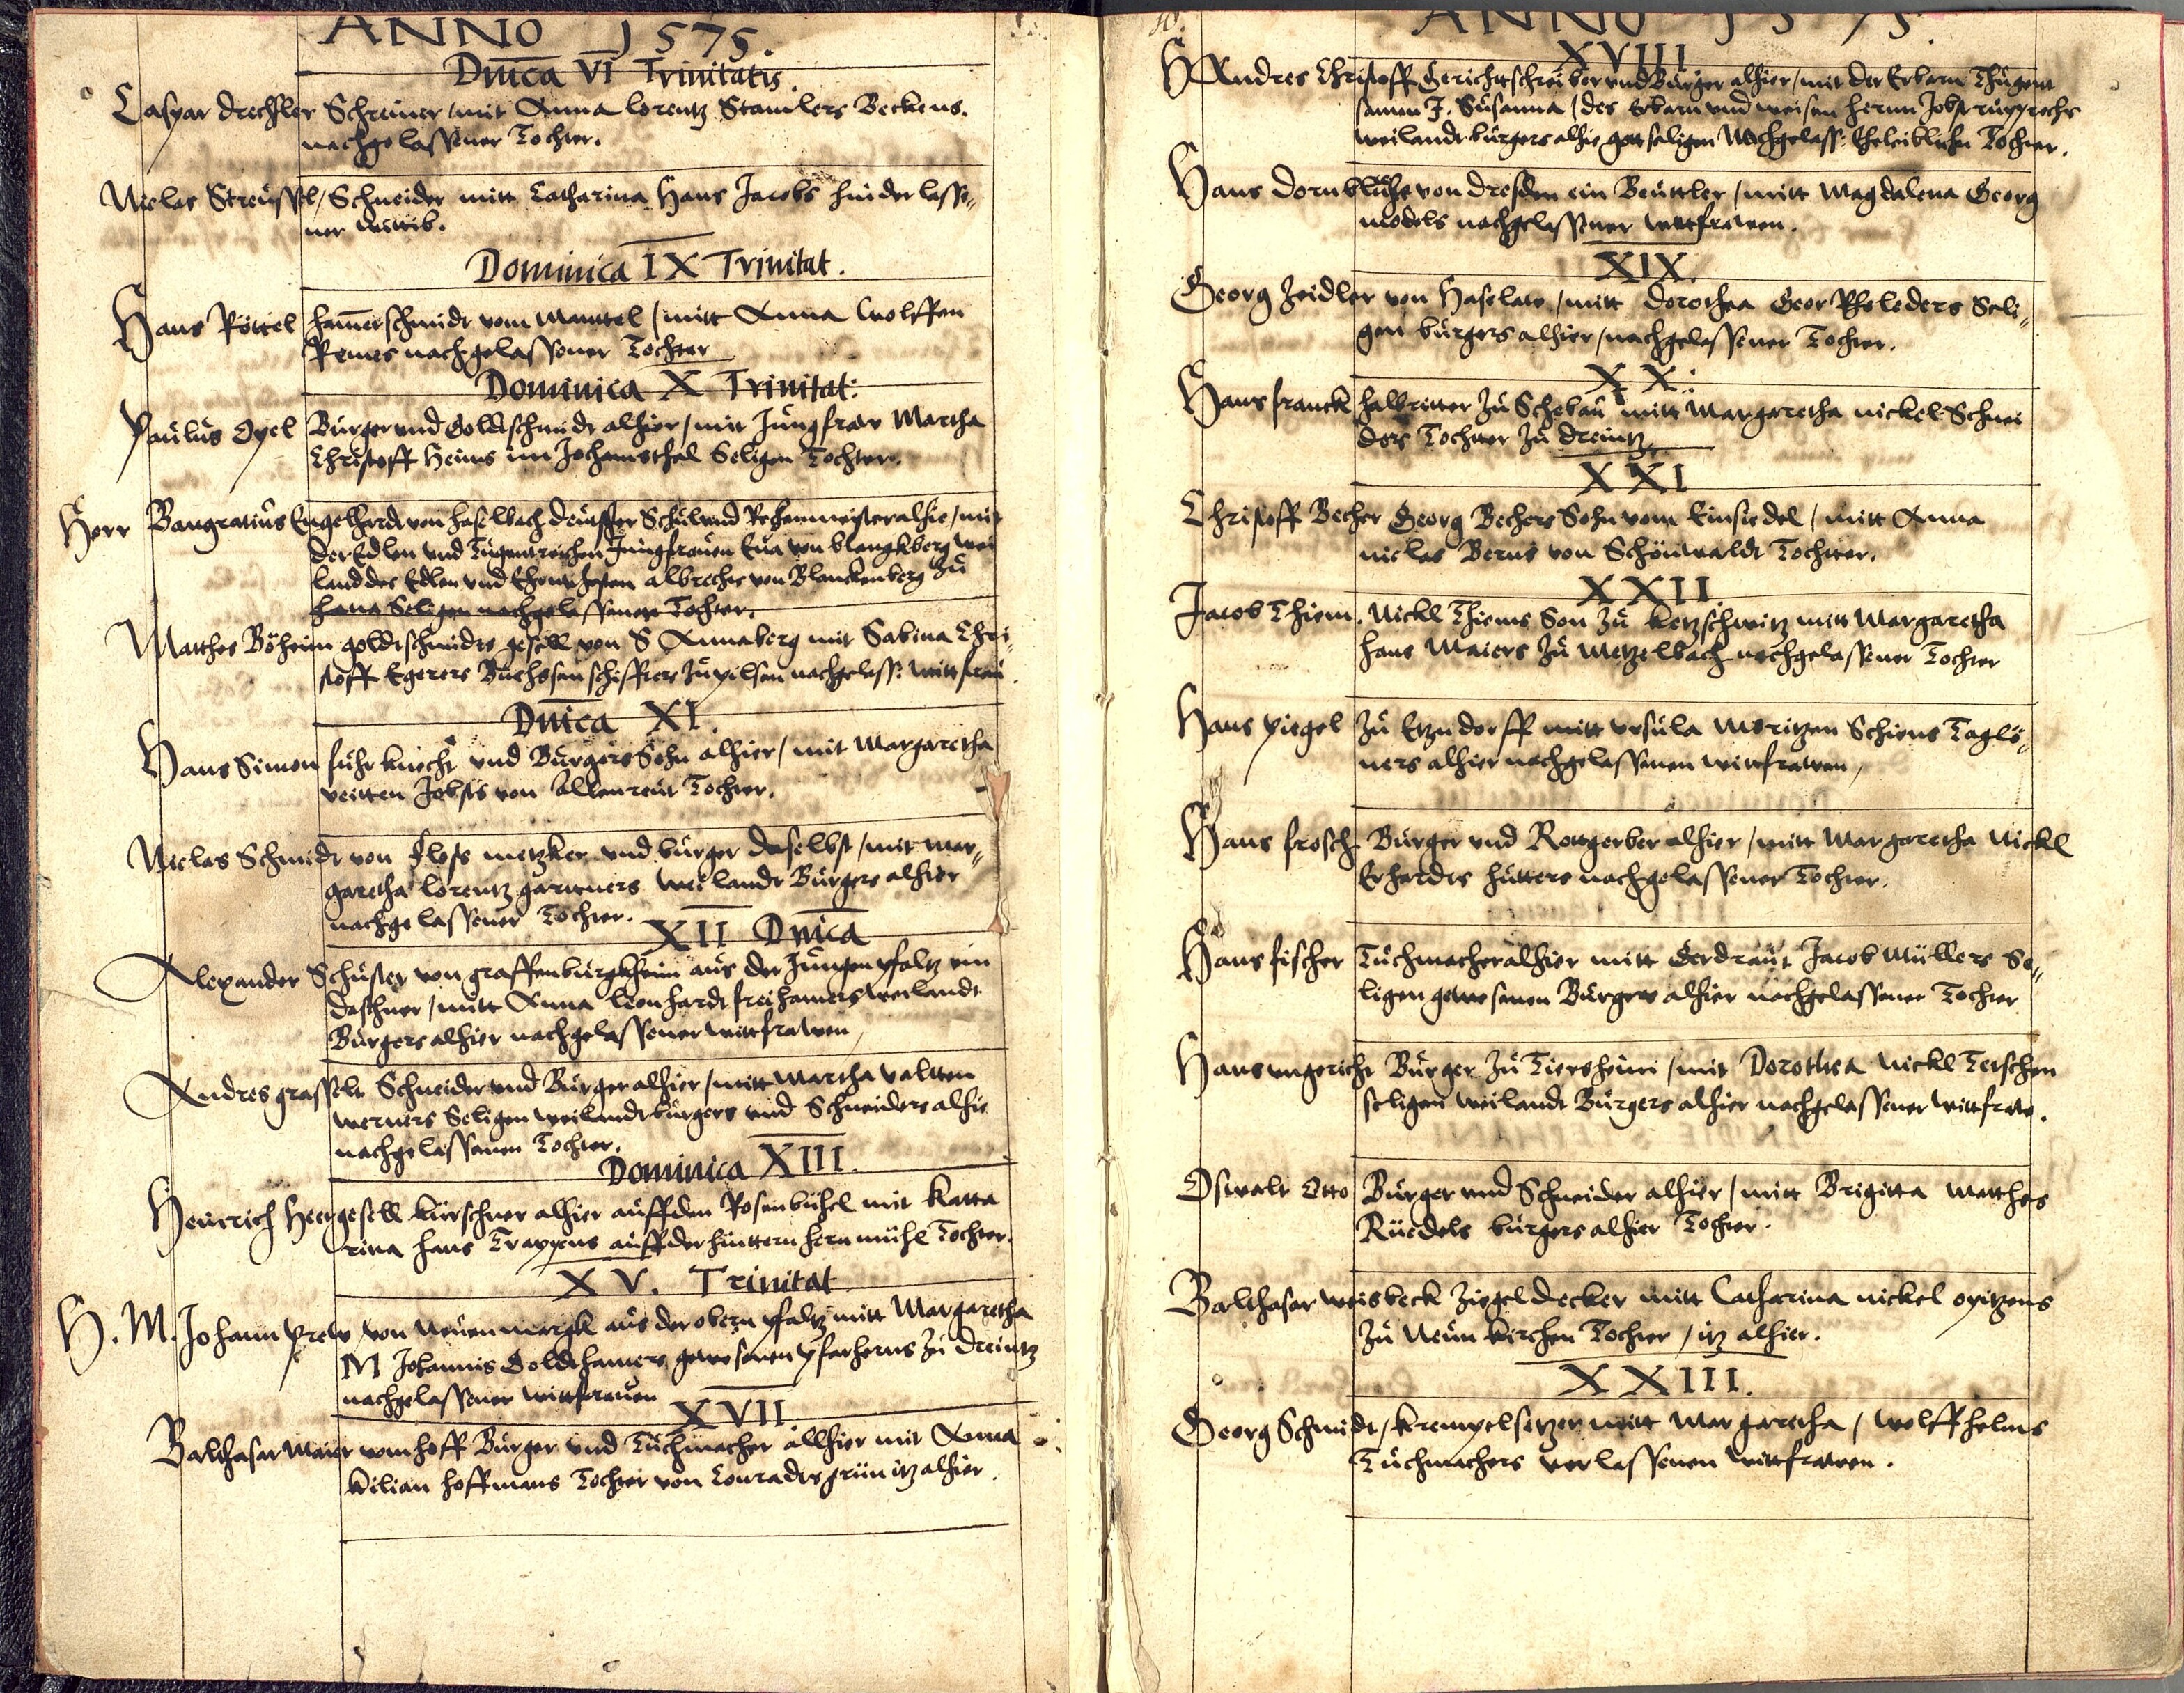 ANNO 1575.
Dnica VI Trinitatis.
Caspar drechsler Schreiner / mit Anna lorentz Stamlers Beckens.
nachgelassener Tochter.
Niclas Streussel / Schneider mitt Catharina Hans Jacobs hinderlasse„
ner wittib.
Dominica IX Trinitat.
Hans Röttel hamerschmidt vom Manttel / mitt Anna Wolffen
Remes nachgelassener Tochter
Dominica X Trinitat:
Paulus Opel Bürger und Goldtschmidt alhier / mit Jungfraw Martha
Christoff Heims im Jochamsthal Seligen Tochter.
Herr Bangratius Engelhardt von haselbach deutscher Schul und Rechenmeister alhie / mit
der Edlen und Tugentreichen Jungfrauen Eva von blangkberg wei
land des Edlen und Ehrnvhesten albrecht von Blanckenberg zu
Seligen nachgelassener Tochter.
Matthes Böheim goldtschmidts gesell von S Annaberg mit Sabina Chri„
stoff Egerers Büchssenschiffters zu pilsen nachgelass: wittfrau.
Dnica XI.
Hans Simon fuhrknecht und Bürgers Sohn alhier / mit Margaretha
veitten Jobsts von Albenreut Tochter.
Niclas Schmidt von Floss metzker und burger daselbst / mit mar„
garetha lorentz gartners weilandt Bürgers alhier
nachgelassener Tochter.
XII Dnica
Alexander Schuster von graffenburgkheim aus der Jungen pfaltz ein
daschner / mitt Anna leonhardt freihamers weilandt
Bürgers alhier nachgelassener wittfrawen,
Andres grasselt Schneider und Bürger alhier / mitt Martha valtten
werners Seligen weilandt bürgers und Schneiders alhie
nachgelassenen Tochter.
Dominica XIII.
Heinrich Heergesell kürschner alhier auff den Rosenbühel mit Katta
rina hans Trappens auff der hinttern hernmühl Tochter.
XV. Trinitat
H. M. Johann Prew von Neuenmargk aus der obern pfaltz mitt Margaretha
M Johannis Goldthamers gewesenen pfarherns zu dreintz
nachgelassener wittfrauen
XVII.
Balthasar Maier vom hoff Bürger und Tuchmacher allhier mit Anna
kilian hoffmans Tochter von Conradtsgrün itz alhier.
ANNO 1575
XVIII.
H Andres Christoff Gerichtschreiber und Bürger alhier / mit der Erbarn Thugent
samen J. Susanna / des Erbarn und weisen herrn Jobst rupprecht
weilandt bürgers alhie gottseligen Nachgelass: Eheleiblichn Tochter.
Hans dornblüht von dresden ein Beuttler / mitt Magdalena Georg
models nachgelassener wittfrawen.
XIX.
Georg Zeidler von Haslaw / mitt dorothea Geor Rheleders Seli„
gen bürgers alhier / nachgelassener Tochter.
XX.
Hans franck halbritter zu Schebau mitt Margaretha nickel Schnei
ders Tochtter zu dreintz
XXI
Christoff Becher Georg Bechers Sohn vom Einsiedel / mitt Anna
niclas Berns von Schönwaldt Tochtter.
XXII.
Jacob Thiem. Nickl Thiems Son zu ketzschwitz mitt Margaretha
hans Maiers zu Metzelbach nachgelassener Tochter
Hans piegel zu Etzndorff mitt ursula Moritzen Schiens Taglö„
ners alhier nachgelassenen wittfrawen,
Hans frosch Bürger und Rottgerber alhier / mitt Margaretha Nickl
Erhardts hutters nachgelassener Tochter.
Hans fischer Tuchmacher alhier mitt Gerdraut Jacob Müllers Se„
ligen gewesenen Bürgers alhier nachgelassener Tochter
Hans ungericht Bürger zu Tiersheim / mit Dorothea Nickl Tetschen
seligen weilandt Bürgers alhier nachgelassener wittfraw.
Oswalt Otto Bürger und Schneider alhier / mitt Brigitta Matthes
Rüedels burgers alhier Tochter.
Balthasar weisbeck Ziegeldecker mitt Catharina nickel opitzens
zu Neunkirchen Tochter / itz alhier.
XXIII.
Georg Schmidt / krempelsetzer mitt Margaretha / Wolff helms
Tuchmachers verlassenen wittfrawen.